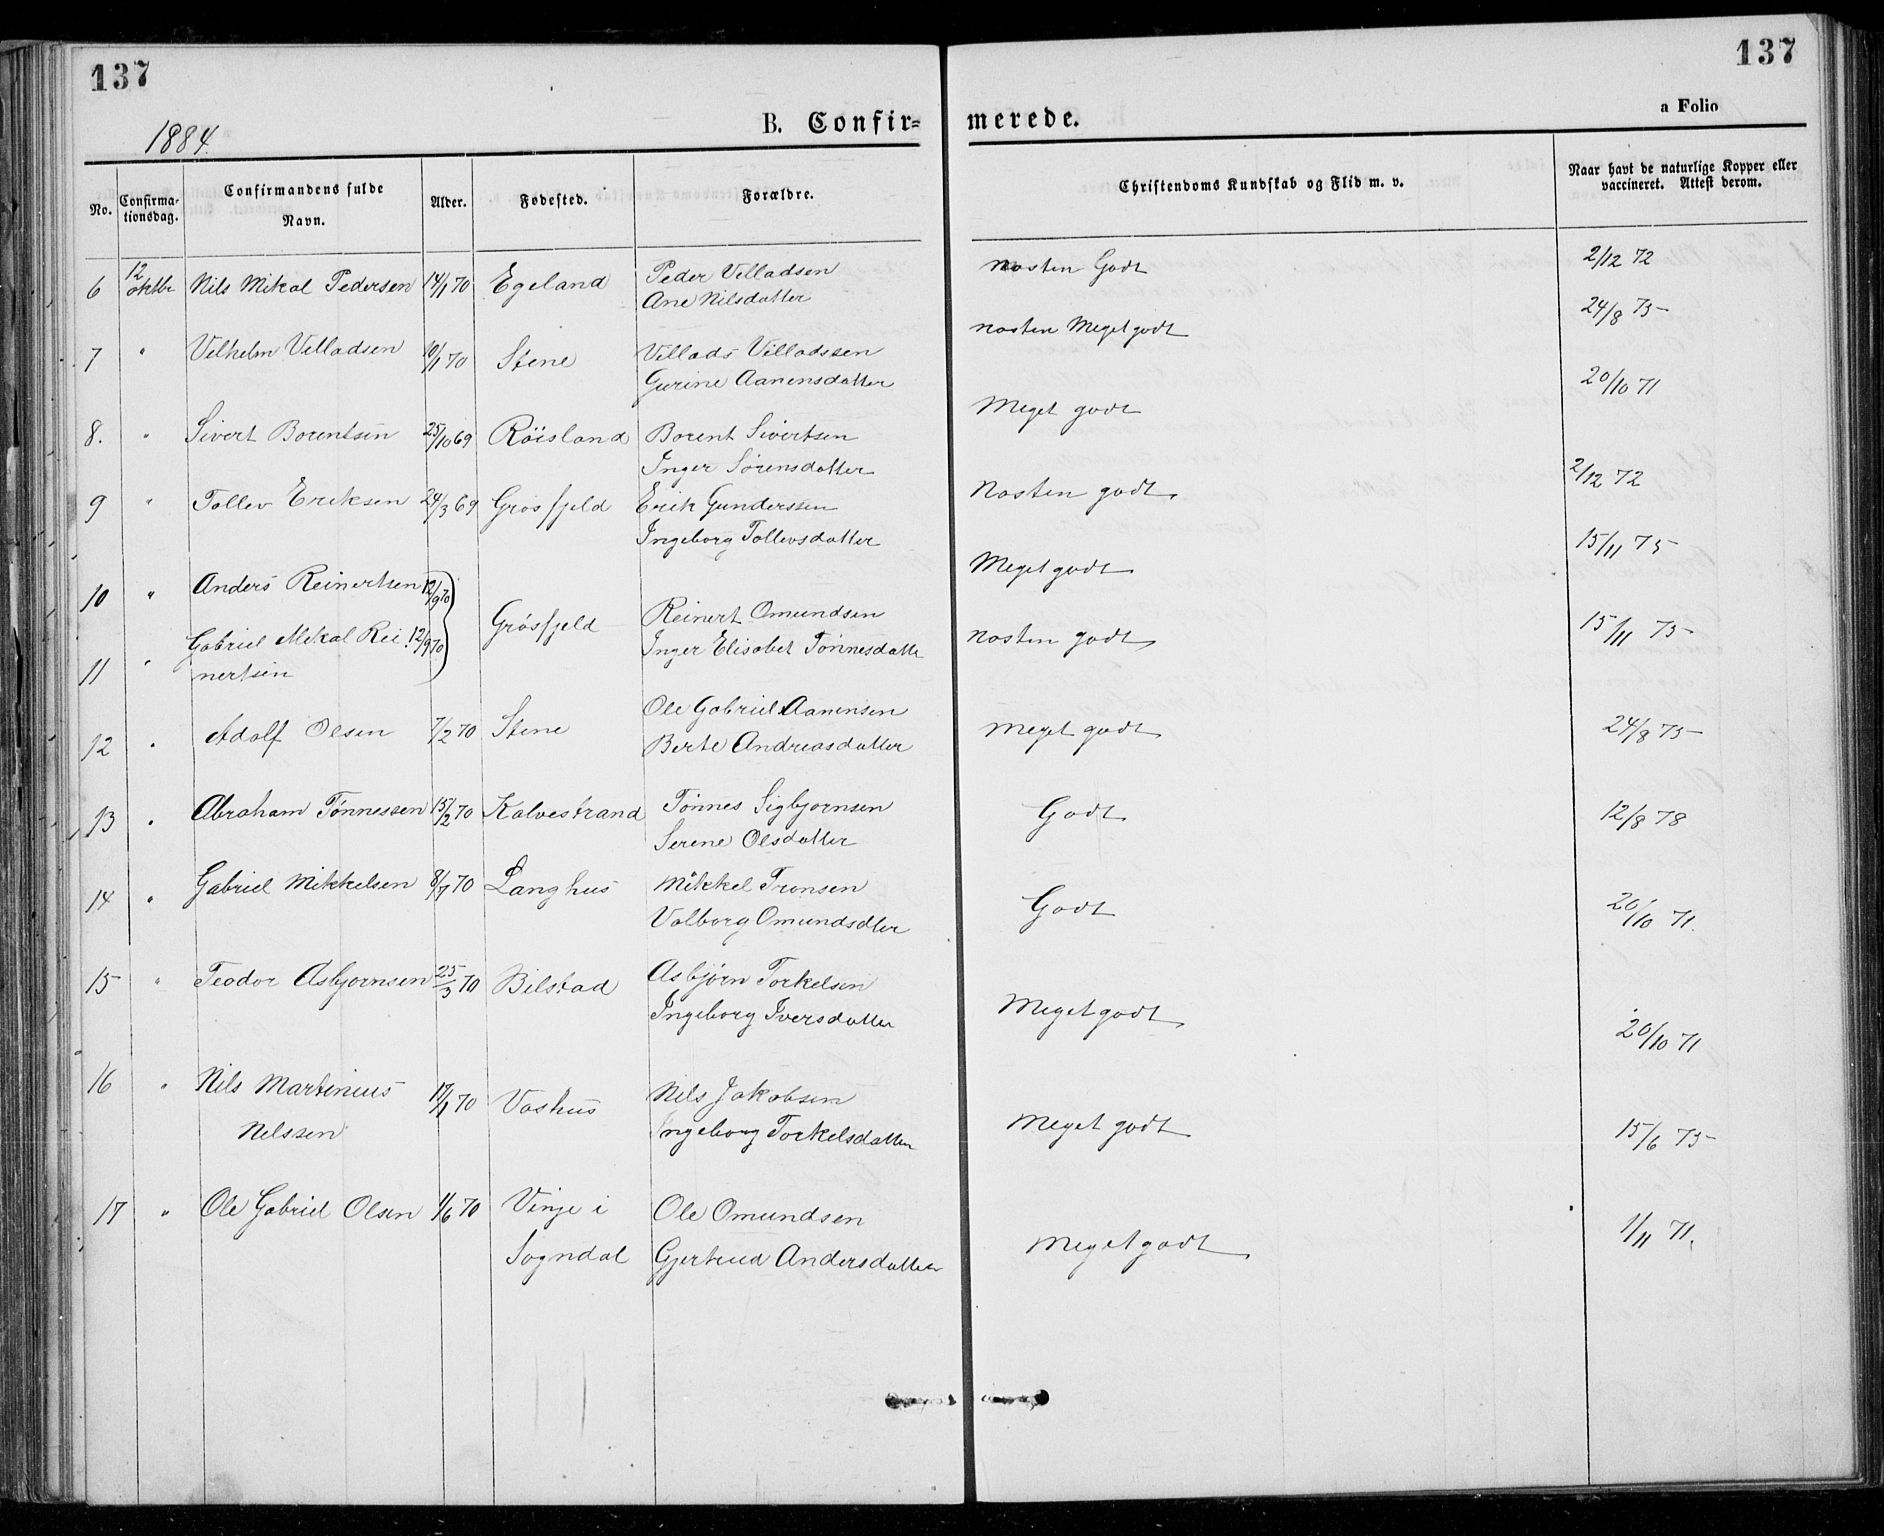 137
137
a Folio
1884.
B. Confir-
merede.
No.
Confirma-
tionsdag.
Confirmandens fulde
Navn.
Alder.
Fødested.
Forældre.
Christendoms Kundskab og Flid m. v.
Naar havt de naturlige Kopper eller
vaccineret. Attest derom.
6 12 oktbr Nils Mikal Pedersen 14/1 70 Egeland Peder Villadsen Nasten Godt 2/12 72
Ane Nilsdatter
7 " Vilhelm Villadsen 10/1 70 Stene Villads Villadssen nasten Meget godt 24/8 75
Gurine Aanensdatter
8. " Sivert Borentsen 25/10 69 Röisland Borent Sivertsen Meget godt 20/10 71
Inger Sörensdatter
9 " Tollev Eriksen 24/3 69 Grösfjeld Erik Gunderssen Nasten godt 2/12 72
Ingeborg Tollevsdatter
10 " Anders Reinertsen 12/9 70 Meget godt 15/11 75
Grösfjeld Reinert Omundsen
11 " Gabriel Mikal Rei- 12/9 70 Inger Elisabet Tönnesdatte nasten godt 15/11 75
nertsen
12 " Adolf Olsen 7/2 70 Stene Ole Gabriel Aanensen Meget godt 24/8 75
Berte Andreasdatter
13 " Abraham Tönnessen 15/2 70 Kalvestrand Tönnes Sigbjornsen Godt 12/8 78
Serene Olsdatter
14 " Gabriel Mikkelsen 8/7 70 Langhus Mikkel Tronsen Godt 20/10 71.
Valborg Omundsdter
15 " Teodor Asbjornsen 25/3 70 Bilstad Asbjörn Torkelsen Meget godt 20/10 71
Ingeborg Iversdatter
16 " Nils Martinius 17/1 70 Vashus Nils Jakobsen Meget godt 15/6 75
Nilssen Ingeborg Torkelsdatter
17 " Ole Gabriel Olsen 1/6 70 Vinje i Ole Omundsen Meget godt 1/11 71.
Sogndal Gjertrud Andersdatter